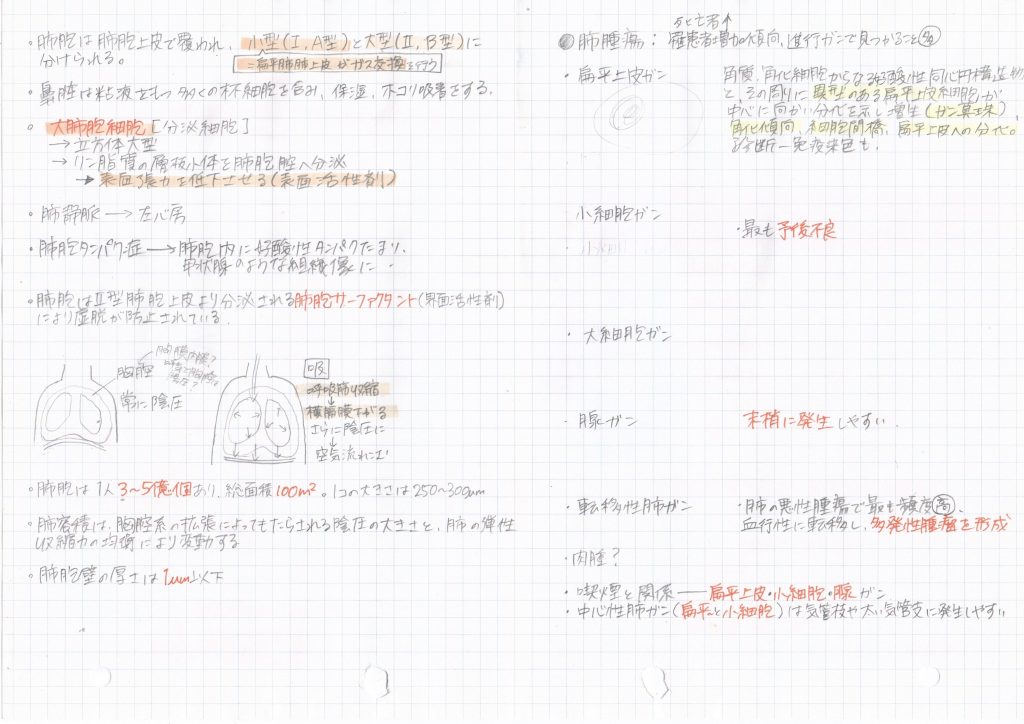 ・肺胞は肺胞上皮で覆われ、小型(I,A型)と大型(II,B型)に
分けられる。
=扁平肺胞上皮がガス交換を行う
・鼻腔は粘液をもつ多くの杯細胞を含み、保湿、ホコリ吸着をする。
・大肺胞細胞[分泌細胞]
→立方体大型
→リン脂質の層板小体を肺胞腔へ分泌
→表面張力を低下させる(表面活性剤)
・肺静脈→左心房
・肺胞タンパク症→肺胞内に好酸性タンパクたまり、
甲状腺のような組織像に
・肺胞はII型肺胞上皮より分泌される肺胞サーファクタント(界面活性剤)
により虚脱が防止されている.
胸腔
常に陰圧
吸
呼吸筋収縮
↓
横隔膜下がる
さらに陰圧に
↓
空気流れこむ
・肺胞は1人3〜5億個あり、総面積100m²。1コの大きさは250〜300μm
・肺容積は、胸腔系の拡張によってもたらされる陰圧の大きさと、肺の弾性
収縮力の均衡により変動する
・肺胞壁の厚さは1μm以下
死亡者↑
●肺腫瘍:罹患者増加傾向、進行ガンで見つかること多
・扁平上皮ガン
角質、角化細胞からなる好酸性同心円構造が
と、その周りに異型のある扁平上皮細胞が
中心に向かい分化を示し増生(ガン真珠)
角化傾向、細胞間橋、扁平上皮への分化。
診断→免疫染色も.
小細胞ガン
・最も予後不良
・大細胞ガン
・腺ガン
末梢に発生しやすい.
・転移性肺ガン
・肺の悪性腫瘍で最も頻度高.
血行性に転移し、多発性腫瘤を形成
・肉腫?
・喫煙と関係―扁平上皮・小細胞・腺ガン
・中心性肺ガン(扁平と小細胞)は気管枝や太い気管支に発生しやすい